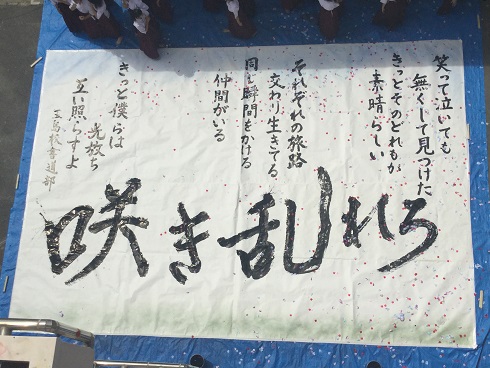 笑って泣いても
無くして見つけた
きっとそのどれもが
素晴らしい
それぞれの旅路
交わり生きてる
同じ瞬間をかける
仲間がいる
きっと僕らは
光放ち
互い照らすよ
校書道部
咲き乱れろ